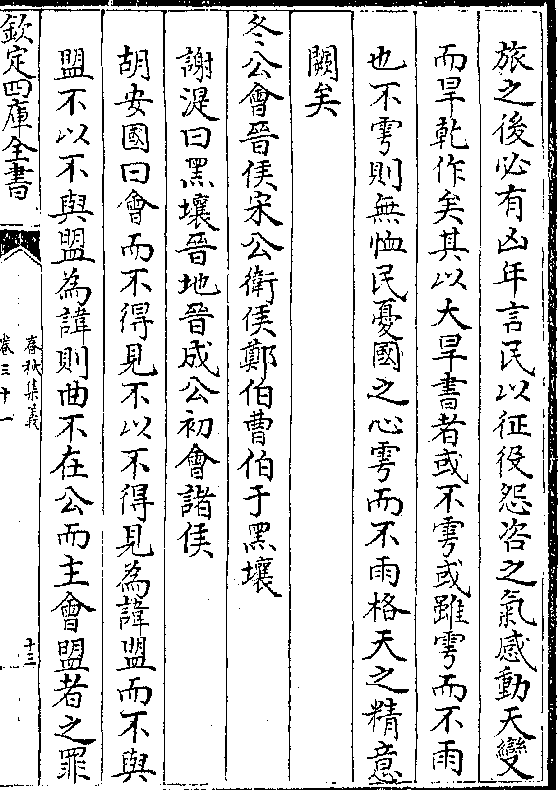 旅之後必有凶年言民以征役怨咨之氣感動天變
而旱乾作矣其以大旱書者或不雩或雖雩而不雨
也不雩則無恤民憂國之心雩而不雨格天之精意
闕矣
冬公會晉侯宋公衛侯鄭伯曹伯于黑壤
謝湜曰黑壤晉地晉成公初會諸侯
胡安國曰會而不得見不以不得見為諱盟而不與
盟不以不與盟為諱則曲不在公而主會盟者之罪
欽定四庫全書
春秋集義
卷三十一
十三